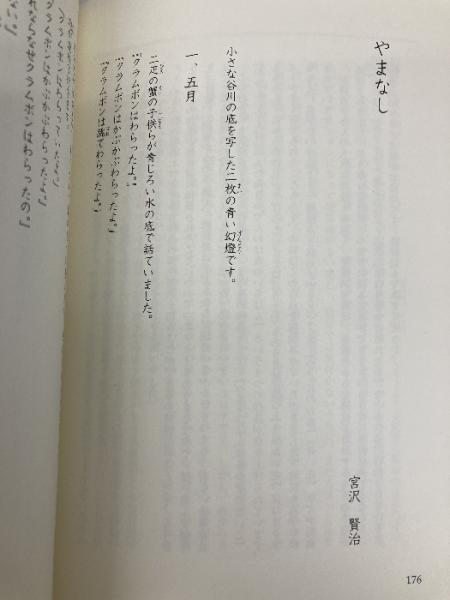 やまなし
宮沢 賢治
小さな谷川の底を写した二枚の青い幻燈です。
一、五月
二疋の蟹の子供らが青じろい水の底で話ていました。
『クラムボンはわらったよ。』
『クラムボンはかぷかぷわらったよ。』
『クラムボンは跳てわらったよ。』
176
クラムボンはわらっていたよ。』
クラムボンはかぷかぷわらったよ。』
れならなぜクラムボンはわらったの。』
ない。』